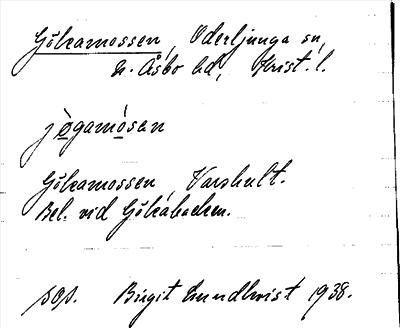 Gökamossen, Oderljunga sn,
N. Åsbo hd, Krist. l.
jø̀gamósan
Gökamossen, Varshult.
Bel. vid Gökabacken.
sos. Birgit Lundkvist 1938.